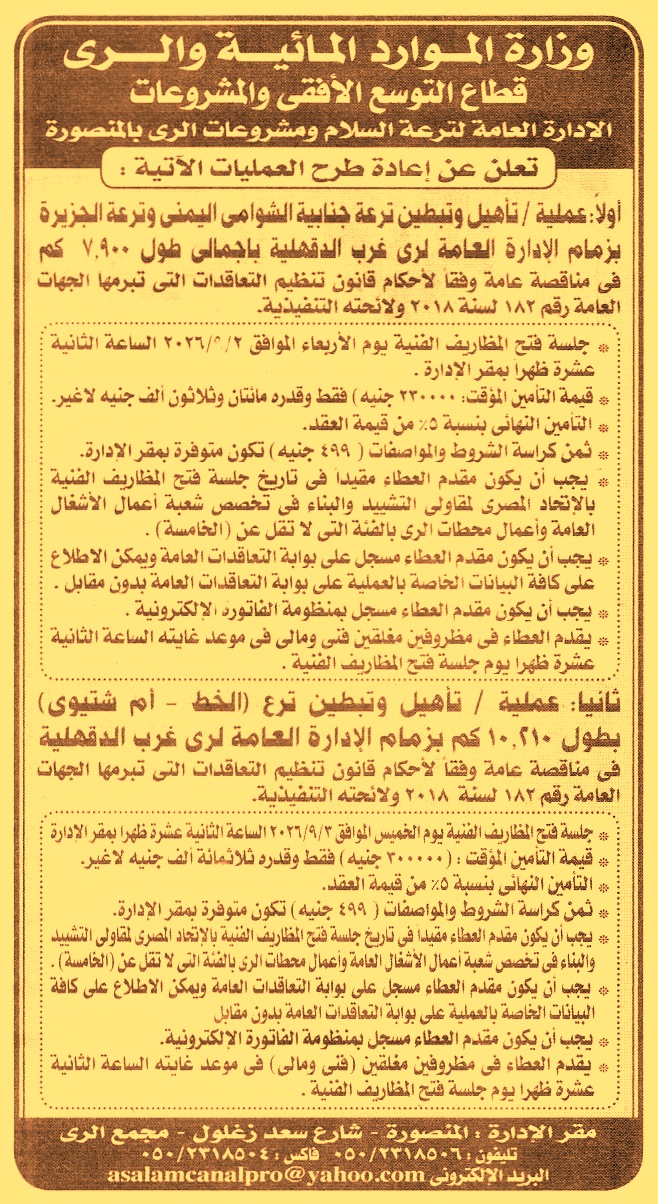 وزارة الموارد المائية والرى
قطاع التوسع الأفقى والمشروعات
الإدارة العامة لترعة السلام ومشروعات الرى بالمنصورة
تعلن عن إعادة طرح العمليات الآتية :
أولاً: عملية / تأهيل وتبطين ترعة جنابية الشوامى اليمنى وترعة الجزيرة
بزمام الإدارة العامة لرى غرب الدقهلية بإجمالى طول ٧,٩٠٠ كم
فى مناقصة عامة وفقاً لأحكام قانون تنظيم التعاقدات التى تبرمها الجهات
العامة رقم ١٨٢ لسنة ٢٠١٨ ولائحته التنفيذية.
* جلسة فتح المظاريف الفنية يوم الأربعاء الموافق ٢٠٢٦/٩/٢ الساعة الثانية
عشرة ظهرا بمقر الإدارة .
* قيمة التأمين المؤقت: ٢٣٠٠٠٠ جنيه) فقط وقدره مائتان وثلاثون ألف جنيه لاغير.
* التأمين النهائى بنسبة ٥٪ من قيمة العقد.
* ثمن كراسة الشروط والمواصفات ( ٤٩٩ جنيه) تكون متوفرة بمقر الإدارة.
* يجب أن يكون مقدم العطاء مقيداً فى تاريخ جلسة فتح المظاريف الفنية
بالاتحاد المصرى لمقاولى التشييد والبناء فى تخصص شعبة أعمال الأشغال
العامة وأعمال محطات الرى بالفئة التى لا تقل عن (الخامسة) .
* يجب أن يكون مقدم العطاء مسجل على بوابة التعاقدات العامة ويمكن الاطلاع
على كافة البيانات الخاصة بالعملية على بوابة التعاقدات العامة بدون مقابل .
* يجب أن يكون مقدم العطاء مسجل بمنظومة الفاتورة الإلكترونية .
* يقدم العطاء فى مظروفين مغلقين فنى ومالى فى موعد غايته الساعة الثانية
عشرة ظهرا يوم جلسة فتح المظاريف الفنية .
ثانيا: عملية / تأهيل وتبطين ترع (الخط - أم شتيوى)
بطول ١٠,٢١٠ كم بزمام الإدارة العامة لرى غرب الدقهلية
فى مناقصة عامة وفقاً لأحكام قانون تنظيم التعاقدات التى تبرمها الجهات
العامة رقم ١٨٢ لسنة ٢٠١٨ ولائحته التنفيذية.
* جلسة فتح المظاريف الفنية يوم الخميس الموافق ٢٠٢٦/٩/٣ الساعة الثانية عشرة ظهرا بمقر الإدارة
* قيمة التأمين المؤقت : (٣٠٠٠٠٠ جنيه) فقط وقدره ثلاثمائة ألف جنيه لاغير.
* التأمين النهائى بنسبة ٥٪ من قيمة العقد.
* ثمن كراسة الشروط والمواصفات ( ٤٩٩ جنيه) تكون متوفرة بمقر الإدارة.
* يجب أن يكون مقدم العطاء مقيداً فى تاريخ جلسة فتح المظاريف الفنية بالإتحاد المصرى لمقاولى التشييد
والبناء فى تخصص شعبة أعمال الأشغال العامة وأعمال محطات الرى بالفئة التى لا تقل عن (الخامسة) .
* يجب أن يكون مقدم العطاء مسجل على بوابة التعاقدات العامة ويمكن الاطلاع على كافة
البيانات الخاصة بالعملية على بوابة التعاقدات العامة بدون مقابل
* يجب أن يكون مقدم العطاء مسجل بمنظومة الفاتورة الإلكترونية.
* يقدم العطاء فى مظروفين مغلقين (فنى ومالى) فى موعد غايته الساعة الثانية
عشرة ظهرا يوم جلسة فتح المظاريف الفنية .
مقر الإدارة : المنصورة - شارع سعد زغلول - مجمع الرى
تليفون : ٠٥٠/٢٣١٨٥٠٦ فاكس : ٠٥٠/٢٣١٨٥٠٤
البريد الإلكترونى asalamcanalpro@yahoo.com